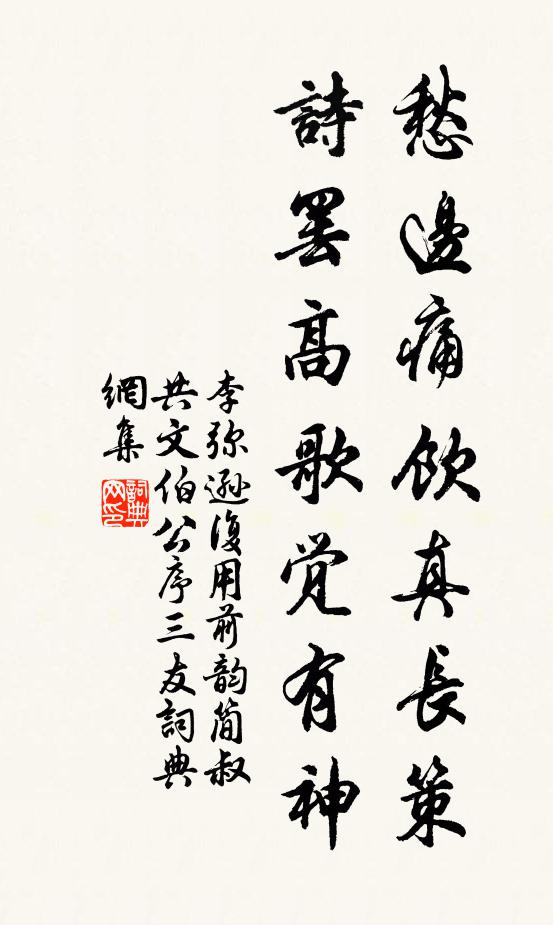 愁邊痛飲真長策
詩罷高歌覺有神
李弥遜復用前韵簡叔
共文伯公序三友詞典
網集
詞典
网印